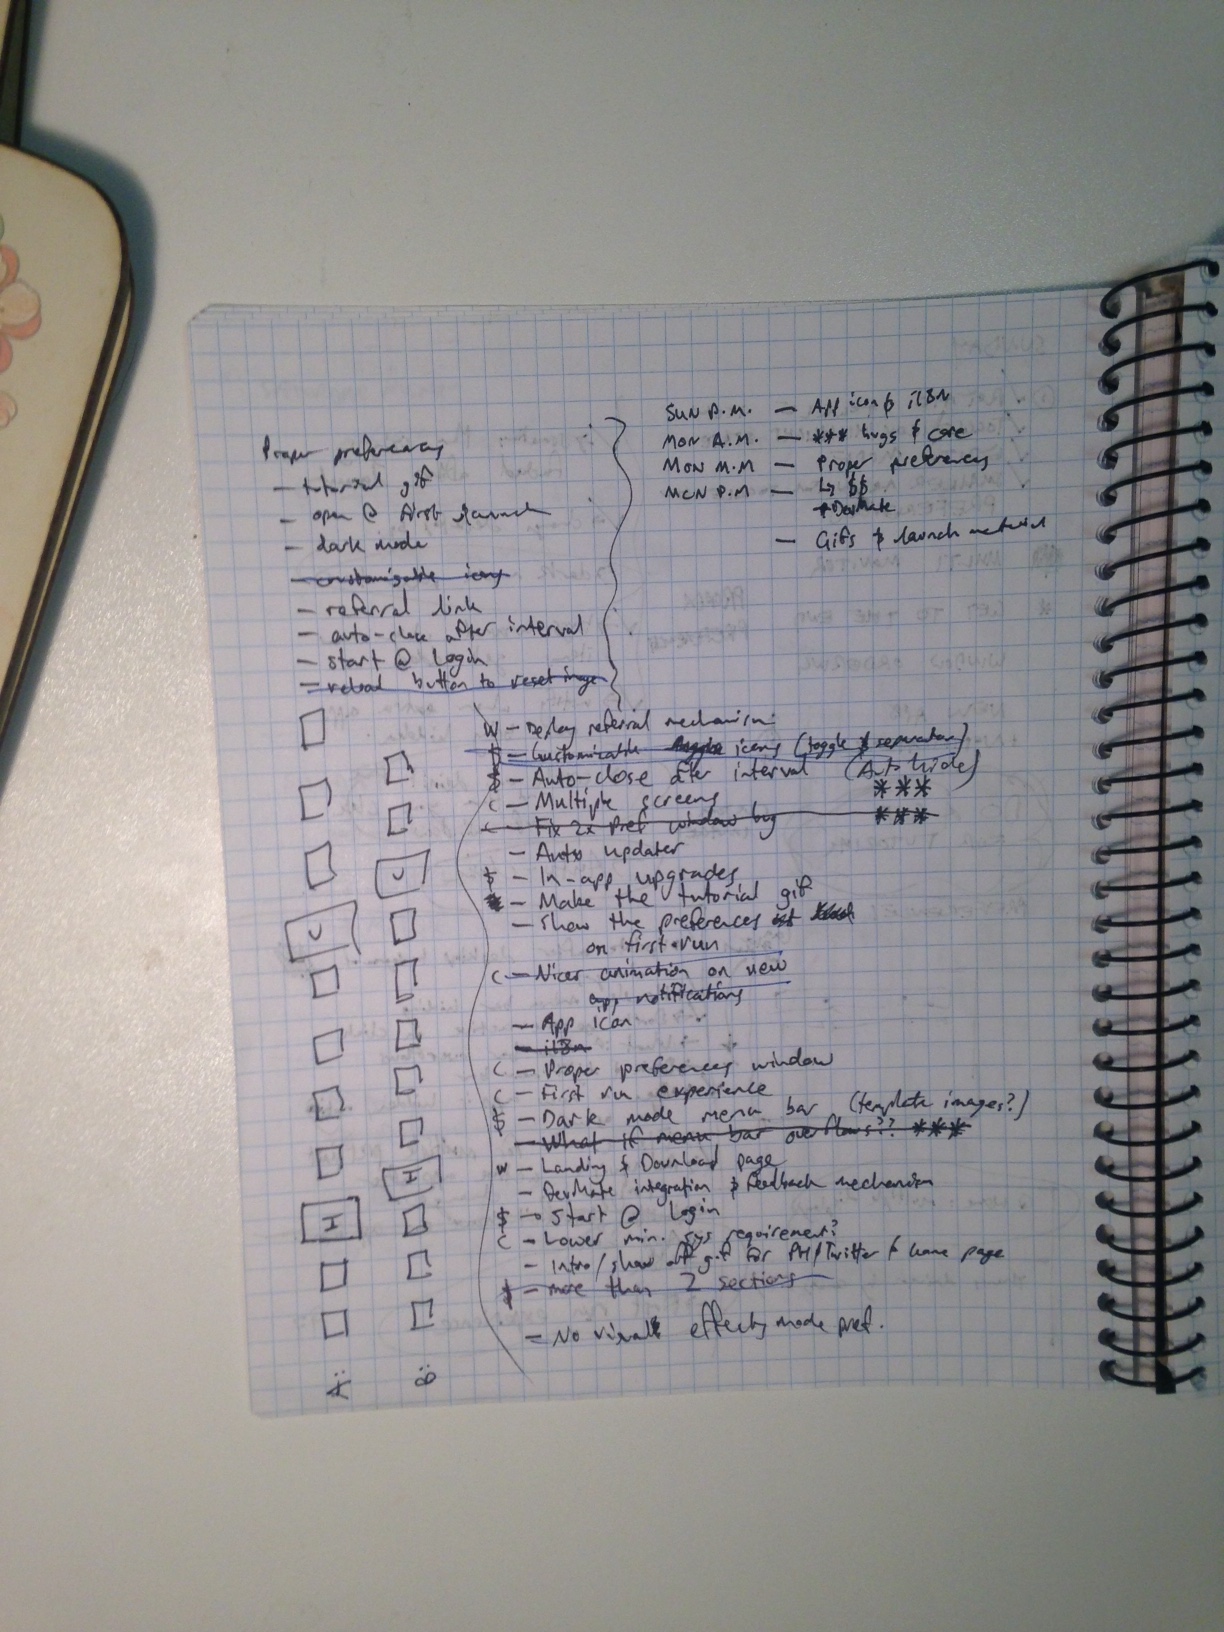 Proper preferences
- tutorial gif
- open @ first launch
- dark mode
- customizable icons
- referral link
- auto-close after interval
- start @ login
- reload button to reset image
SUN P.M. — App icon & i18N
MON A.M. — *** bugs & core
MON M.M — Proper preferences
MON P.M — ↳ $$
+DevMate
— Gifs & launch material
W — Deploy referral mechanism
$ — Customizable icons (toggle & separator)
$ — Auto-close after interval (Auto hide)
C — Multiple screens ***
C — Fix 2x Pref window bug ***
— Auto updater
$ — In-app upgrades
— Make the tutorial gif
— Show the preferences
on first run
C — Nicer animation on new
app notifications
— App icon
— i18n
C — Proper preferences window
C — First run experience
$ — Dark mode menu bar (template images?)
— What if menu bar overflows?? ***
W — Landing & Download page
— DevMate integration & feedback mechanism
$ — Start @ login
C — Lower min. sys requirement?
— Intro/show off gif for PH/Twitter & home page
$ — more than 2 sections
— No visual effects mode pref.
U
U
I
I
A:
B: